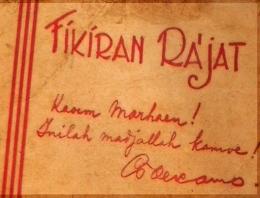 FIKIRAN RA'JAT
Kaoem Marhaen!
Inilah madjallah kamoe!
Soekarno.